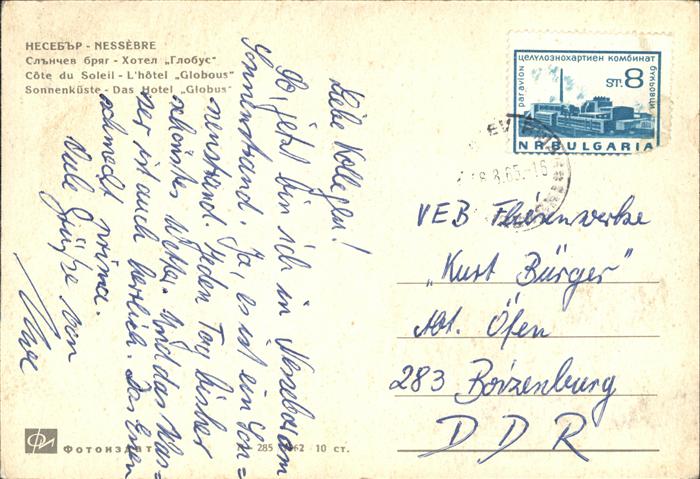 НЕСЕБЪР - NESSÈBRE
Слънчев бряг - Хотел „Глобус“
Côte du Soleil - L'hôtel „Globous“
Sonnenküste - Das Hotel „Globus“
Liebe Kollegen!
So, jetzt bin ich in Nessebar am
Sonnenstrand. Ja, es ist ein Son=
nenstrand. Jeden Tag bisher
schönstes Wetter. Und das Was=
ser ist auch herrlich. Das Essen
schmeckt prima.
Viele Grüße von
Uwe
par avion
целулознохартиен комбинат
букьовци
ST. 8
NR. BULGARIA
8.65.-16
VEB Fliesenwerke
„Kurt Bürger“
Abt. Öfen
283 Boizenburg
DDR
Фотоиздат
285 62 10 ст.